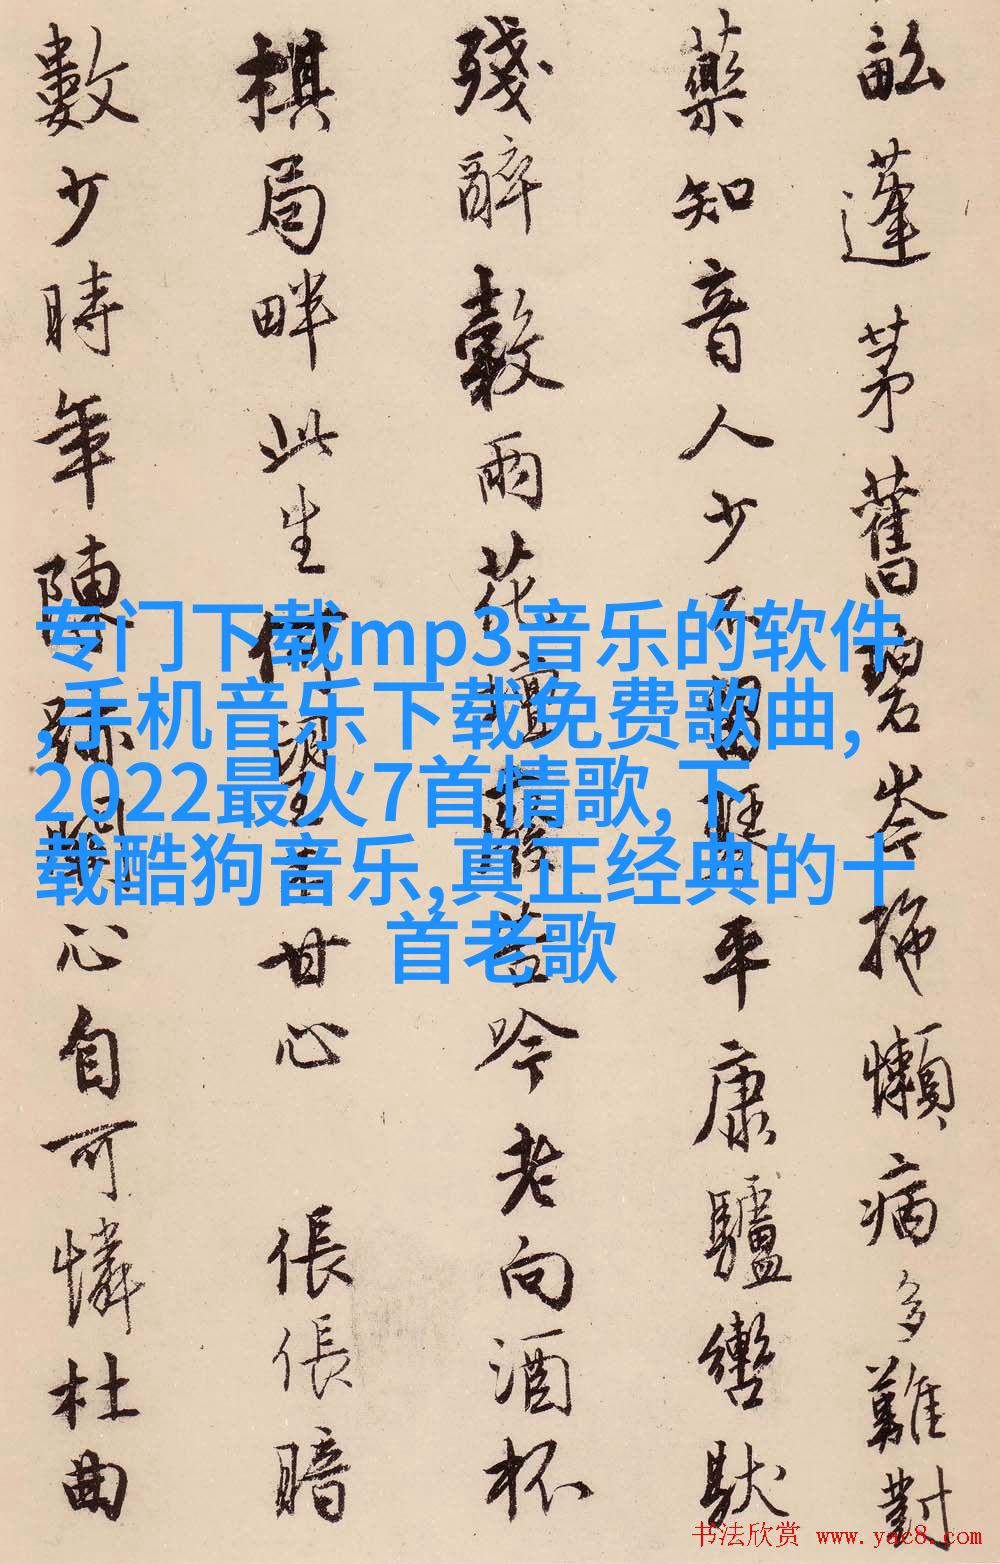 畝蓬茅舊碧岑拖懶病多難對
藥知音人少不平康驢轡馱
殘醉穀雨花壇吟老向酒杯
棋局畔此生望甘心 倀倀暗
數少時年陳跡關心自可憐杜曲
专门下载mp3音乐的软件
,手机音乐下载免费歌曲,
2022最火7首情歌,下
载酷狗音乐,真正经典的十
首老歌
书法欣赏 www.yac8.com